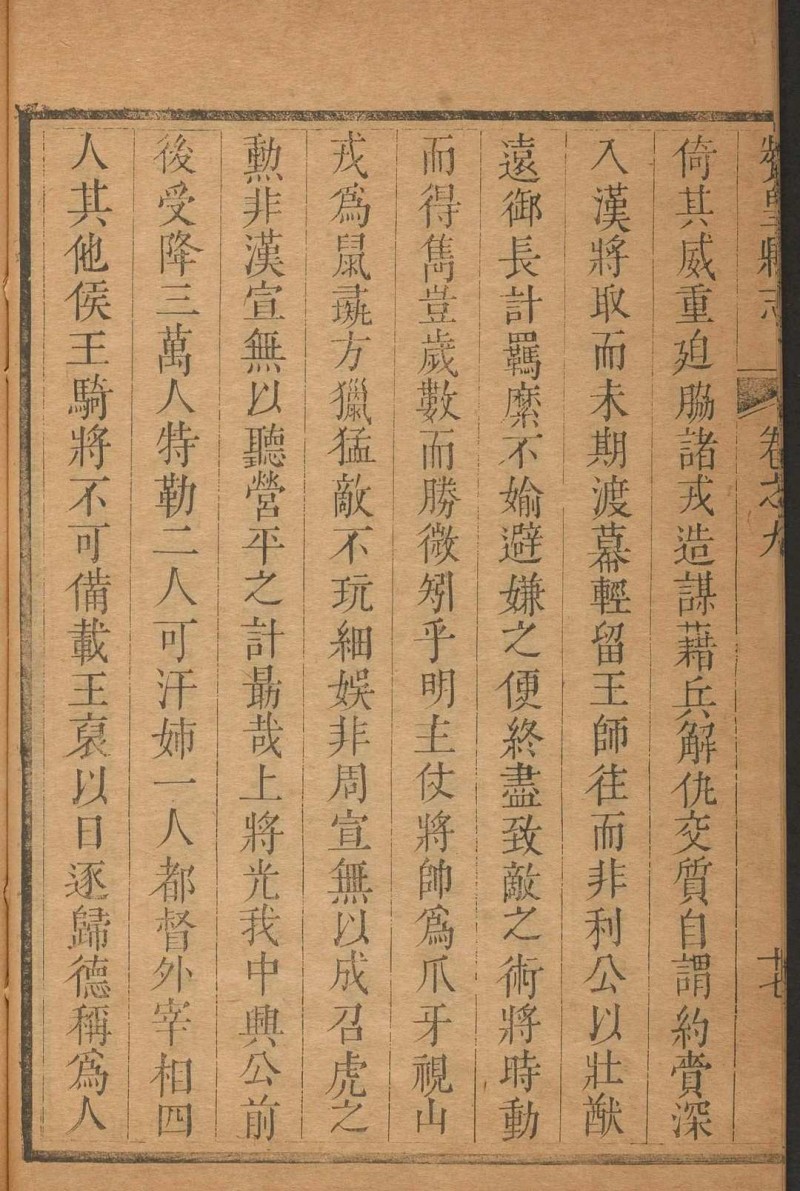 贊皇縣志 卷之九 十七
倚其威重廹脇諸戎造謀藉兵解仇交質自謂約賫深
入漢將取而未期渡幕輕留王師往而非利公以壯猷
遠御長計羈縻不媮避嫌之便終盡致敵之術將時動
而得雋豈歲數而勝微矧乎明主仗將帥為爪牙視山
戎為鼠㲉方獵猛敵不玩細娛非周宣無以成召虎之
勲非漢宣無以聽營平之計勗哉上將光我中興公前
後受降三萬人特勒二人可汗姉一人都督外宰相四
人其他侯王騎將不可備載王裒以日逐歸德稱為人